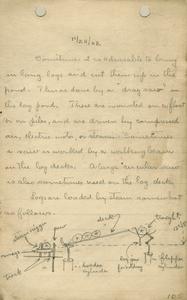 11/24/22
Sometimes it is desirable to bring
in long logs and cut them up in the
pond. This is done by a "drag saw" in
the log pond. These are mounted on a float
or on piles, and are driven by compressed
air, electric motor, or steam. Sometimes
a saw is worked by a walking beam
in the log decks. A large circular saw
is also sometimes used on the log deck.
Logs are loaded by steam somewhat
as follows.
deck
loader
cylinder
log for
cylinder